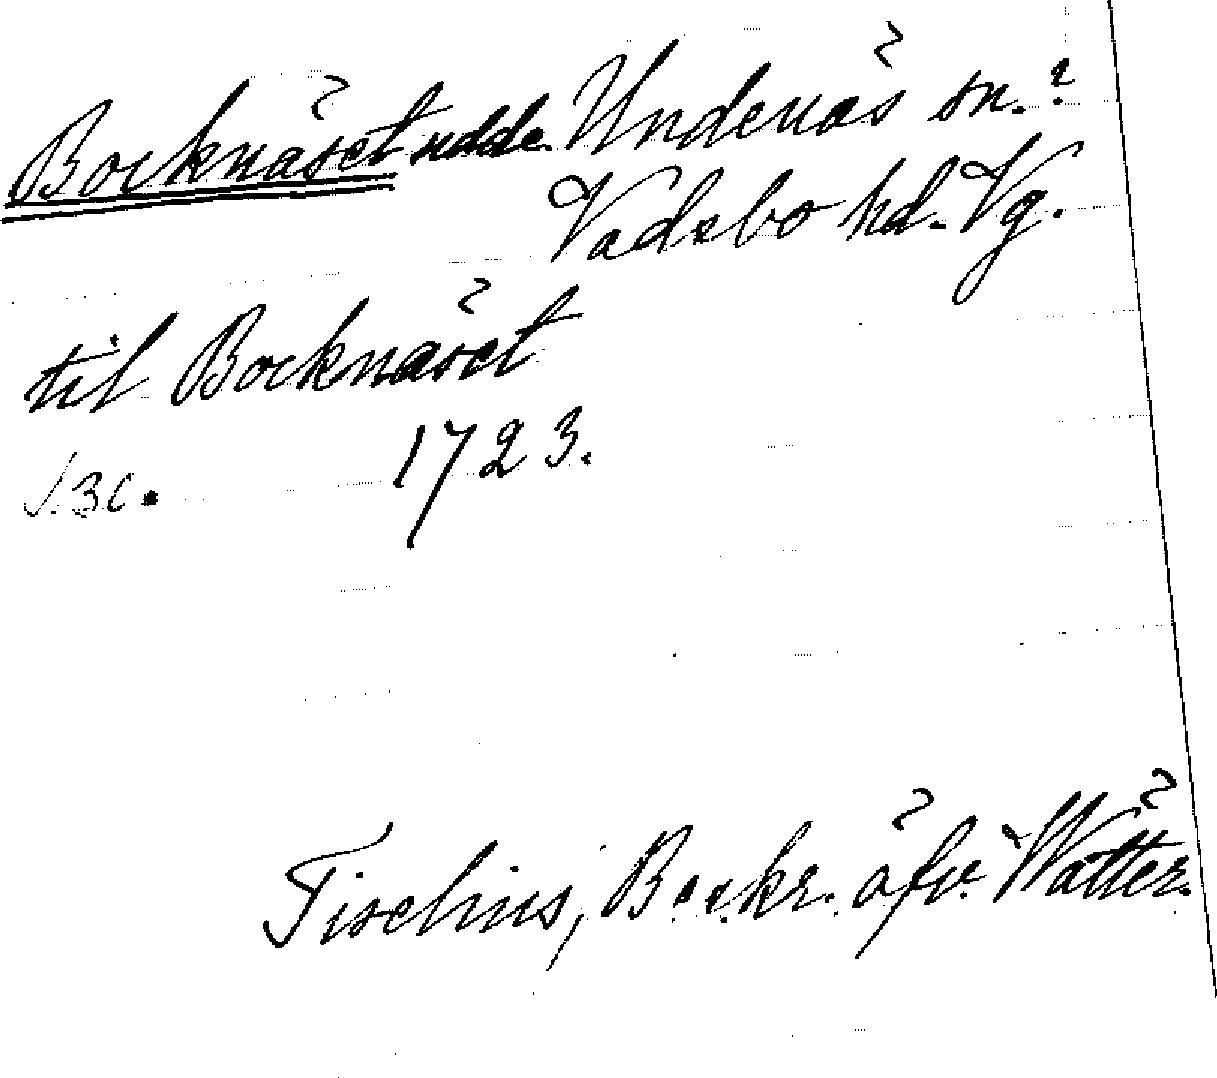 Bocknäset udde Undenäs sn.?
Vadsbo hd. Vg.
til Bocknäset
1723.
s. 30.
Tiselius, Beskr. öfv. Wätter.